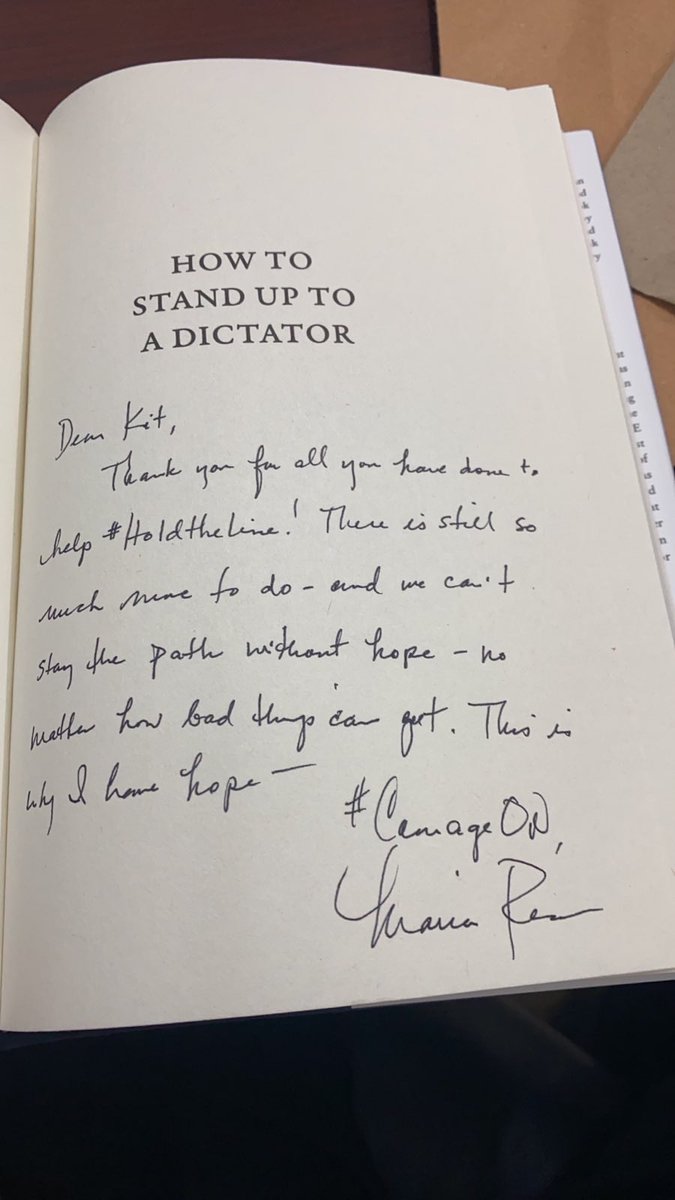 HOW TO
STAND UP TO
A DICTATOR
Dear Kit,
Thank you for all you have done to
help #HoldtheLine! There is still so
much more to do - and we can't
stay the path without hope - no
matter how bad things can get. This is
why I have hope —
#CourageON,
Maria Ressa